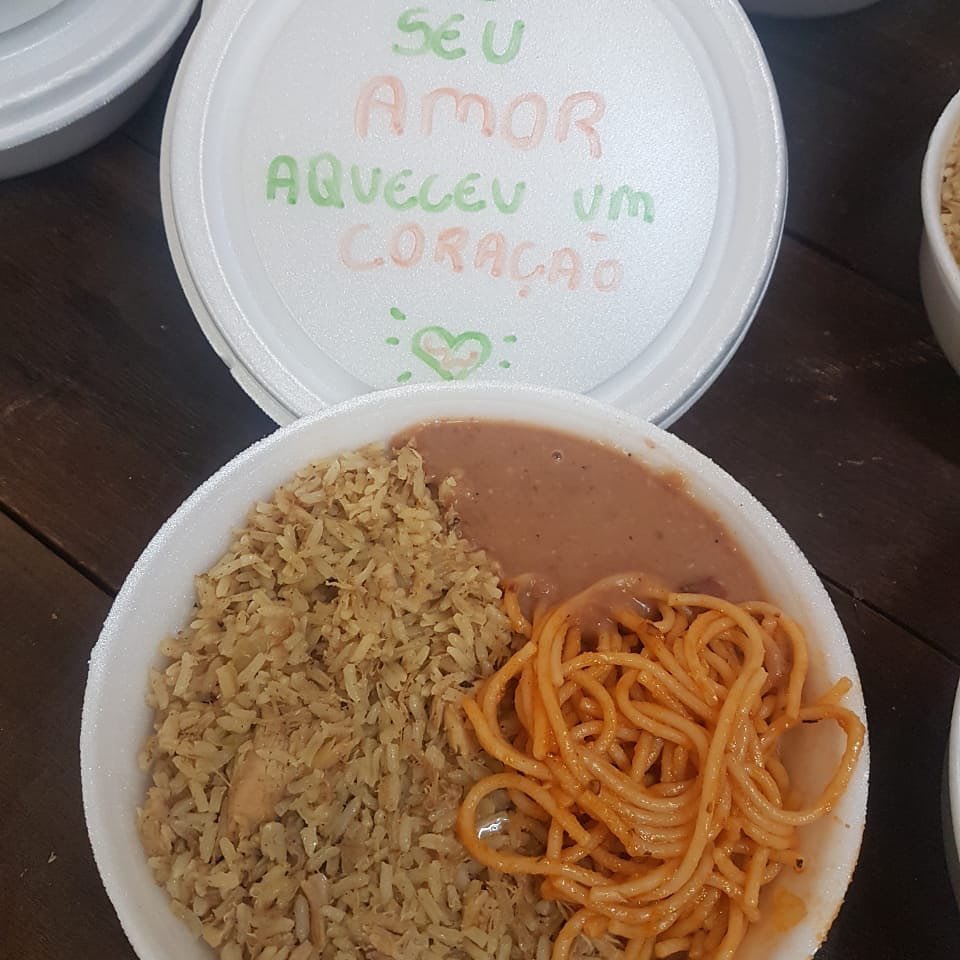 SEU
AMOR
AQUECEU UM
CORAÇÃO